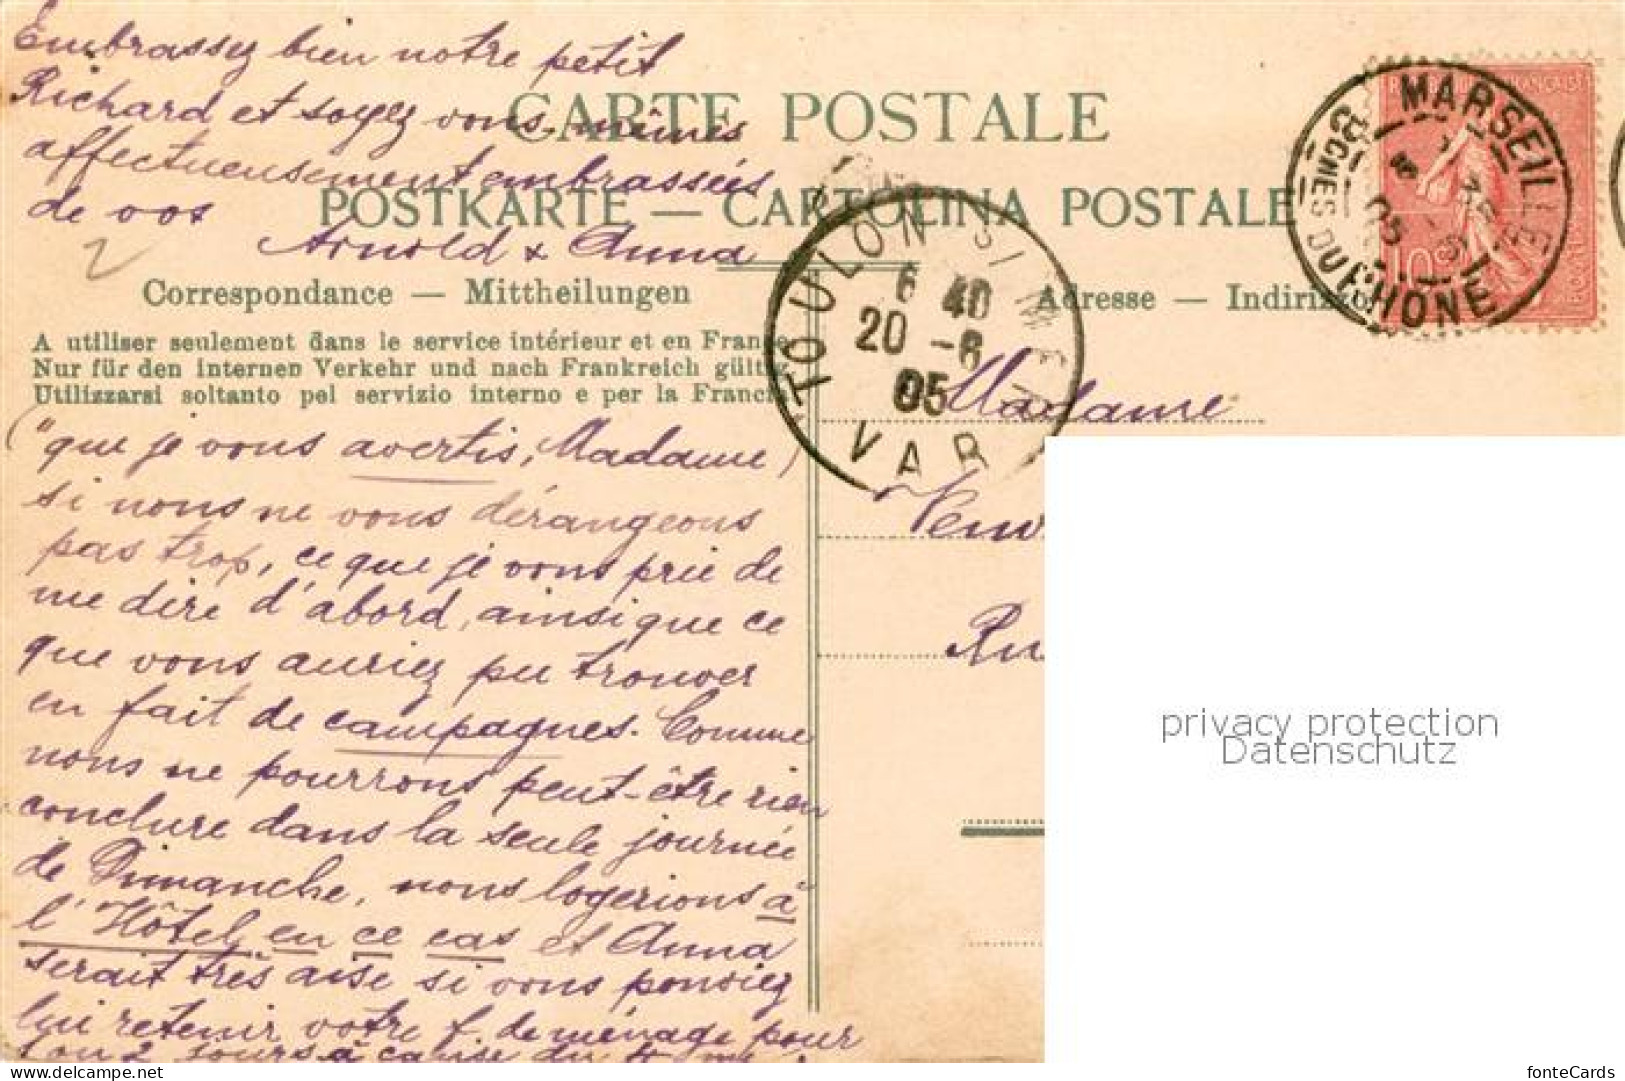 Embrassez bien notre petit
Richard et soyez vous-mêmes
affectueusement embrassées
de vos
Arnold & Anna
2
CARTE POSTALE
POSTKARTE — CARTOLINA POSTALE
Correspondance — Mittheilungen
A utiliser seulement dans le service intérieur et en France
Nur für den internen Verkehr und nach Frankreich gültig
Utilizzarsi soltanto pel servizio interno e per la Francia
("que je vous avertis, Madame)
si nous ne vous dérangeons
pas trop, ce que je vous prie de
me dire d'abord, ainsi que ce
que vous auriez pu trouver
en fait de campagnes. Comme
nous ne pourrons peut-être rien
conclure dans la seule journée
de Dimanche, nous logerions à
l'Hôtel en ce cas et Anna
serait très aise si vous pouviez
lui retenir votre f. de ménage pour
1 ou 2 jours à cause du
TOULON S/ MER
6 40
20 -6
05
VAR
Adresse — Indirizzo
MARSEILLE
BCHES DU RHONE
05
REPUBLIQUE FRANÇAISE
10
POSTES
Madame
privacy protection
Datenschutz
delcampe.net
fonteCards